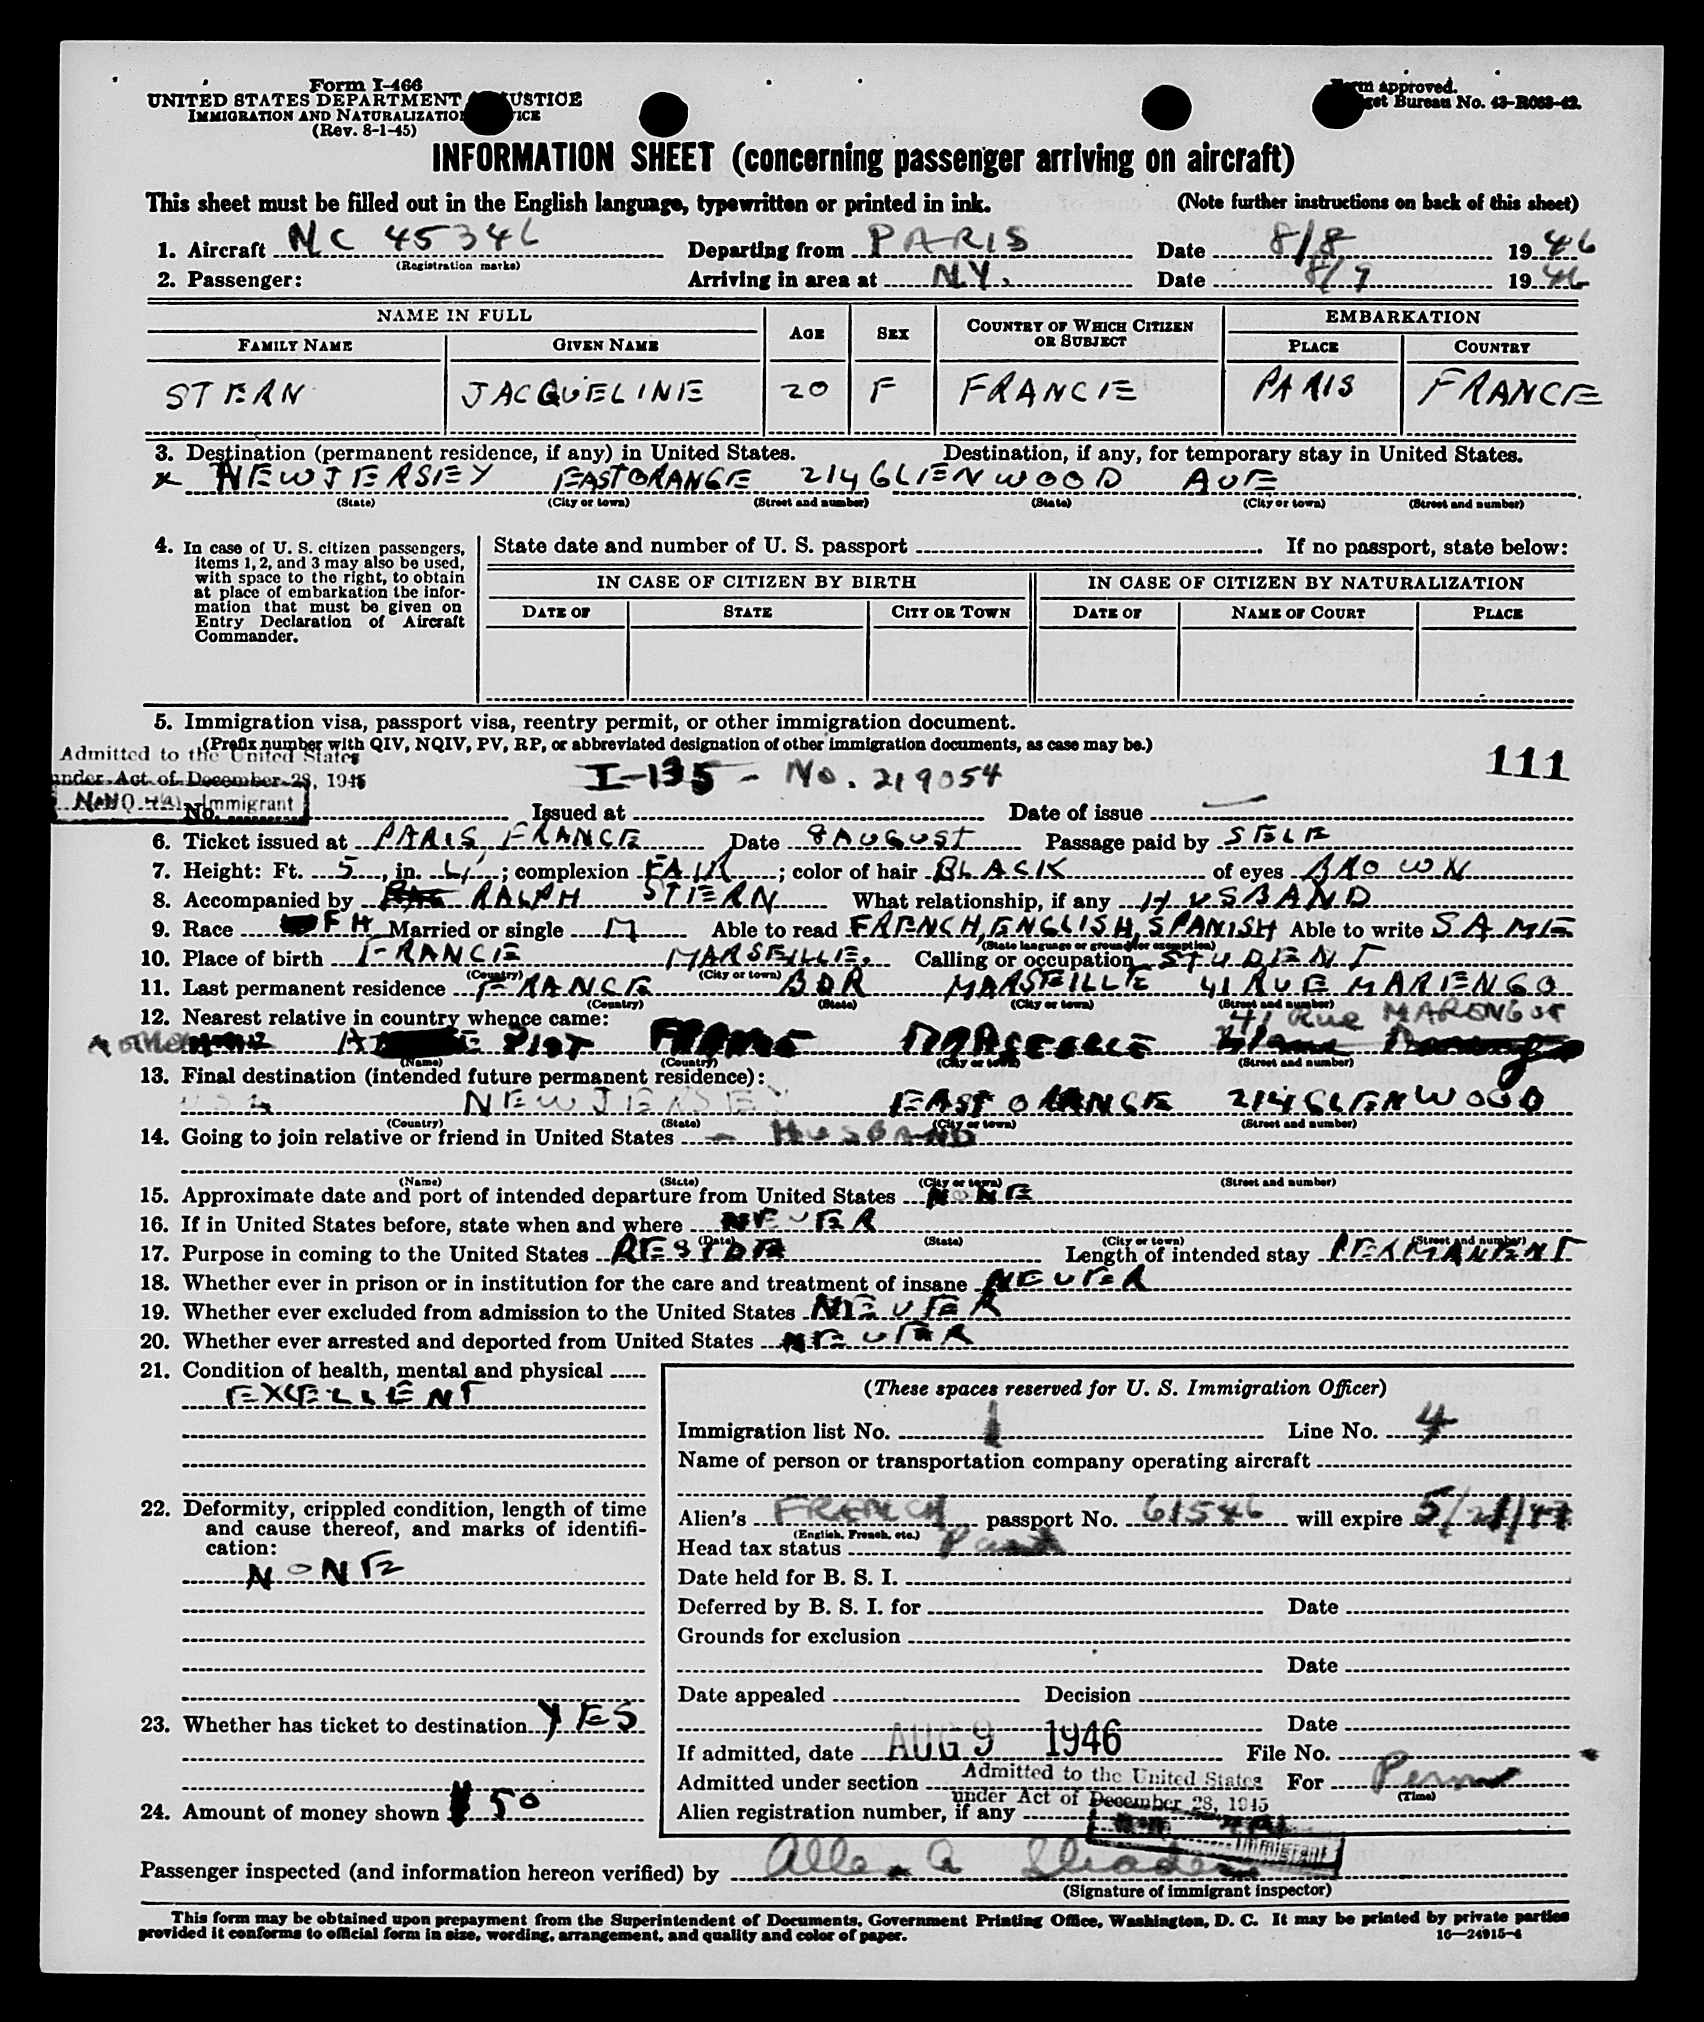 Form I-466
UNITED STATES DEPARTMENT JUSTICE
IMMIGRATION AND NATURALIZATION SERVICE
(Rev. 8-1-45)
Form approved.
Budget Bureau No. 43-R063-42.
INFORMATION SHEET (concerning passenger arriving on aircraft)
This sheet must be filled out in the English language, typewritten or printed in ink. (Note further instructions on back of this sheet)
1. Aircraft NC 45346 Departing from PARIS Date 8/8 1946
(Registration marks)
2. Passenger: Arriving in area at N.Y. Date 8/9 1946
NAME IN FULL AGE SEX COUNTRY OF WHICH CITIZEN OR SUBJECT EMBARKATION
FAMILY NAME GIVEN NAME PLACE COUNTRY
STERN JACQUELINE 20 F FRANCE PARIS FRANCE
3. Destination (permanent residence, if any) in United States. Destination, if any, for temporary stay in United States.
x NEW JERSEY EAST ORANGE 214 GLENWOOD AVE
(State) (City or town) (Street and number) (State) (City or town) (Street and number)
4. In case of U. S. citizen passengers, items 1, 2, and 3 may also be used, with space to the right, to obtain at place of embarkation the information that must be given on Entry Declaration of Aircraft Commander.
State date and number of U. S. passport If no passport, state below:
IN CASE OF CITIZEN BY BIRTH IN CASE OF CITIZEN BY NATURALIZATION
DATE OF STATE CITY OR TOWN DATE OF NAME OF COURT PLACE
5. Immigration visa, passport visa, reentry permit, or other immigration document.
(Prefix number with QIV, NQIV, PV, RP, or abbreviated designation of other immigration documents, as case may be.)
Admitted to the United States
under Act of December 28, 1945
Immigrant
111
I-135 - No. 219054
No. Issued at Date of issue
6. Ticket issued at PARIS, FRANCE Date 8 AUGUST Passage paid by SELF
7. Height: Ft. 5, in. 4; complexion FAIR; color of hair BLACK of eyes BROWN
8. Accompanied by RALPH STERN What relationship, if any HUSBAND
9. Race FH Married or single M Able to read FRENCH, ENGLISH, SPANISH Able to write SAME
(State language or ground for exemption)
10. Place of birth FRANCE MARSEILLE. Calling or occupation STUDENT
(Country) (City or town)
11. Last permanent residence FRANCE BDR MARSEILLE 41 RUE MARENGO
(Country) (State) (City or town) (Street and number)
12. Nearest relative in country whence came: 41 Rue MARENGO
MOTHER FRANCE MARSEILLE
(Name) (Country) (City or town) (Street and number)
13. Final destination (intended future permanent residence):
USA NEW JERSEY EAST ORANGE 214 GLENWOOD
(Country) (State) (City or town) (Street and number)
14. Going to join relative or friend in United States - HUSBAND
(Name) (State) (City or town) (Street and number)
15. Approximate date and port of intended departure from United States NONE
16. If in United States before, state when and where NEVER
(Date) (State) (City or town) (Street and number)
17. Purpose in coming to the United States RESIDE Length of intended stay PERMANENT
18. Whether ever in prison or in institution for the care and treatment of insane NEVER
19. Whether ever excluded from admission to the United States NEVER
20. Whether ever arrested and deported from United States NEVER
21. Condition of health, mental and physical
EXCELLENT
22. Deformity, crippled condition, length of time and cause thereof, and marks of identification:
NONE
23. Whether has ticket to destination YES
24. Amount of money shown $ 50
(These spaces reserved for U. S. Immigration Officer)
Immigration list No. 1 Line No. 4
Name of person or transportation company operating aircraft
Alien's FRENCH passport No. 61546 will expire 5/21/47
(English, French, etc.)
Head tax status Paid
Date held for B. S. I.
Deferred by B. S. I. for Date
Grounds for exclusion
Date
Date appealed Decision
Date
If admitted, date AUG 9 1946 File No.
Admitted under section Admitted to the United States For Perm
(Time)
under Act of December 28, 1945
Alien registration number, if any
Immigrant
Passenger inspected (and information hereon verified) by Allen A
(Signature of immigrant inspector)
This form may be obtained upon prepayment from the Superintendent of Documents, Government Printing Office, Washington, D. C. It may be printed by private parties
provided it conforms to official form in size, wording, arrangement, and quality and color of paper. 16—24915-4